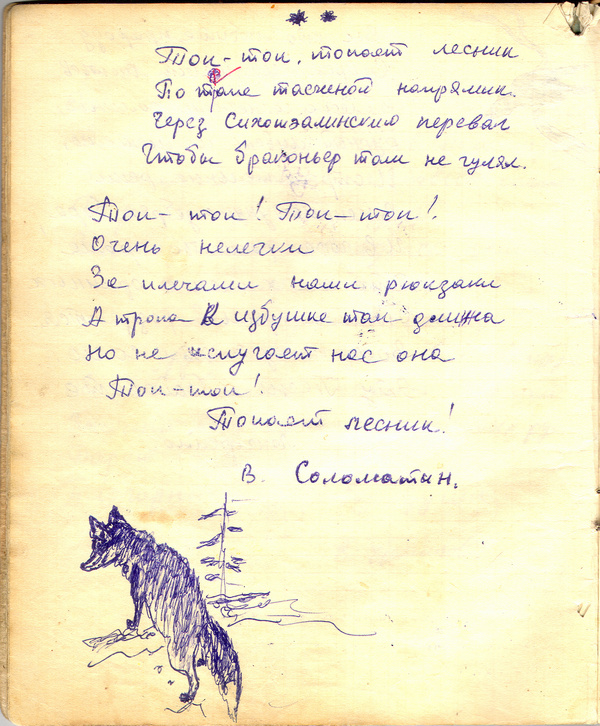 * *
Топ-топ, топает лесник
По тропе таежной напрямик.
Через Сихотэалинский перевал
Чтобы браконьер там не гулял.
Топ-топ! Топ-топ!
Очень нелегки
За плечами наши рюкзаки
А тропа к избушке так длинна
Но не испугает нас она
Топ-топ!
Топает лесник!
В. Соломатин.